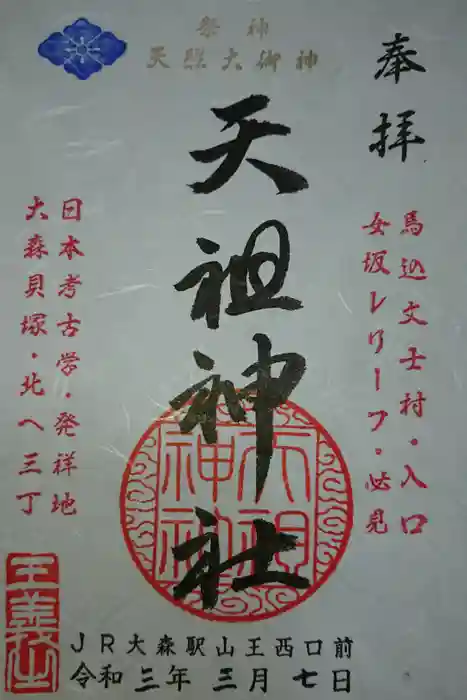 奉拝
祭神
天照大御神
馬込文士村・入口
女坂レリーフ・必見
天祖神社
日本考古学・発祥地
大森貝塚・北へ三丁
天祖
神社
JR大森駅山王西口前
令和三年三月七日